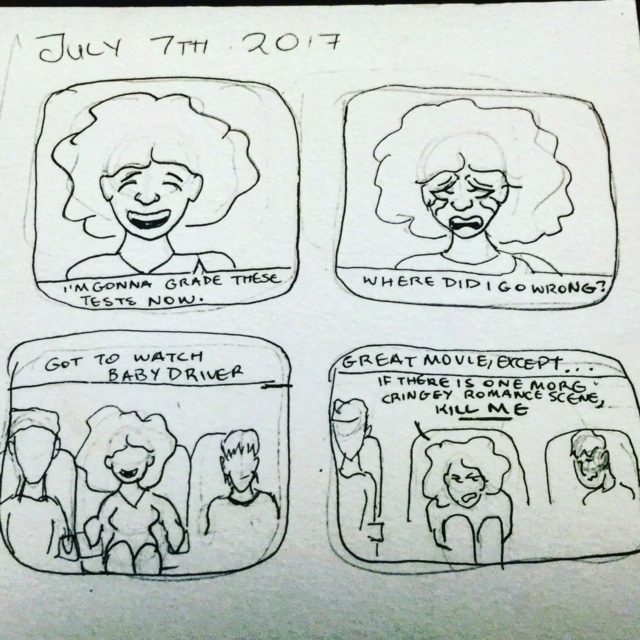 JULY 7TH 2017
I'M GONNA GRADE THESE
TESTS NOW.
WHERE DID I GO WRONG?
GOT TO WATCH
BABY DRIVER
GREAT MOVIE, EXCEPT...
IF THERE IS ONE MORE
CRINGEY ROMANCE SCENE,
KILL ME